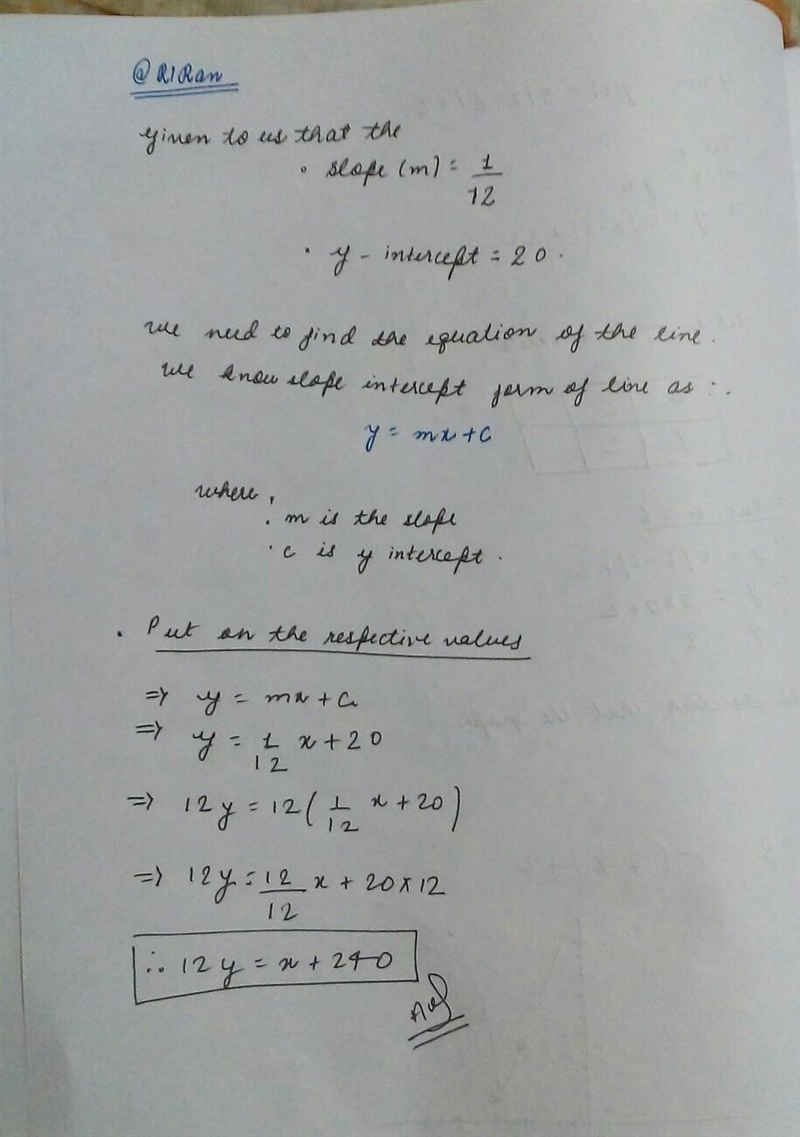 @RIRan
Given to us that the
• slope (m) = 1/12
• y - intercept = 20.
We need to find the equation of the line.
We know slope intercept form of line as :.
y = mx + c
where,
• m is the slope
• c is y intercept.
• Put on the respective values
=> y = mx + c
=> y = 1/12 x + 20
=> 12y = 12( 1/12 x + 20 )
=> 12y = 12/12 x + 20 x 12
∴ 12y = x + 240
Ans